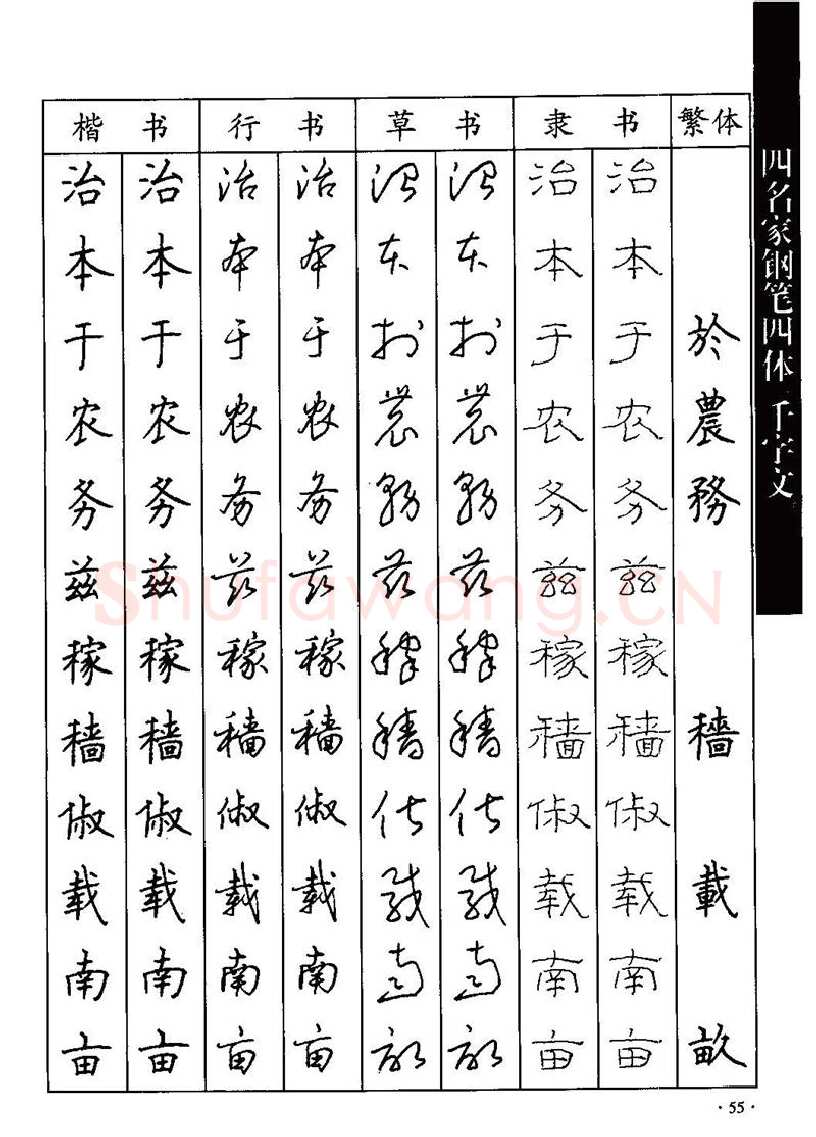 楷书 行书 草书 隶书 繁体
治 治 治 治 治 治 治 治
本 本 本 本 本 本 本 本
于 于 于 于 于 于 于 于 於
农 农 农 农 农 农 农 农 農
务 务 务 务 务 务 务 务 務
兹 兹 兹 兹 兹 兹 兹 兹
稼 稼 稼 稼 稼 稼 稼 稼
穑 穑 穑 穑 穑 穑 穑 穑 穡
俶 俶 俶 俶 俶 俶 俶 俶
载 载 载 载 载 载 载 载 載
南 南 南 南 南 南 南 南
亩 亩 亩 亩 亩 亩 亩 亩 畝
四名家钢笔四体千字文
Shufawang.CN
·55·